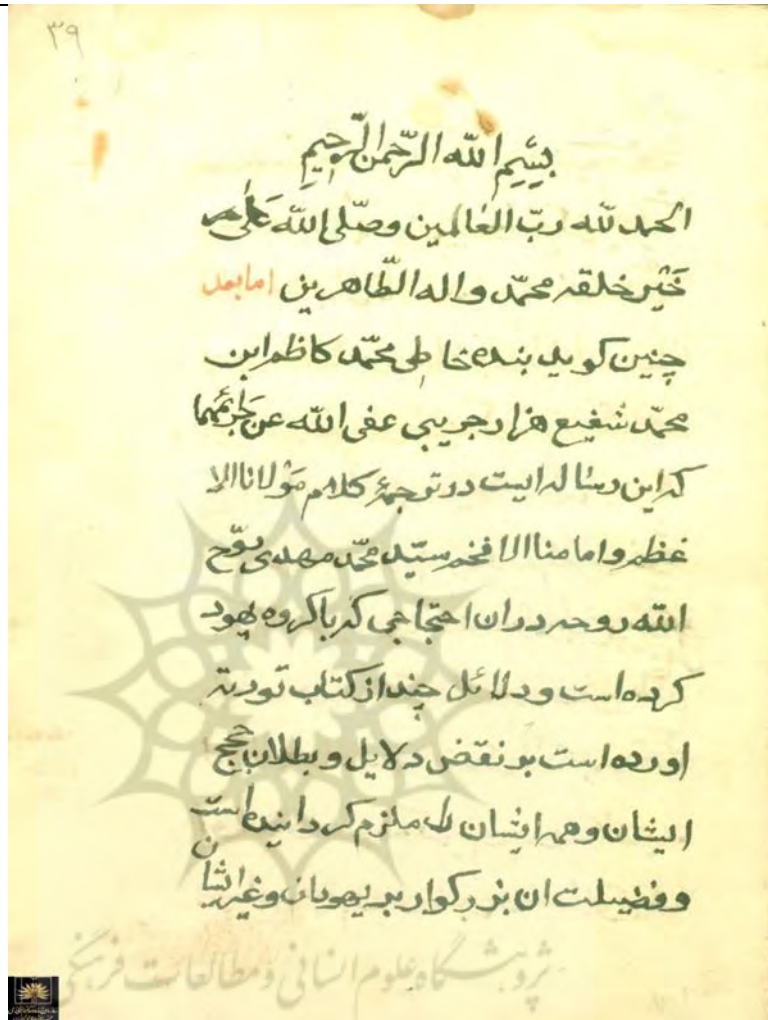 ٣٩
بسم الله الرّحمن الرّحيم
الحمد لله ربّ العالمين وصلّى الله على
خير خلقه محمّد واله الطّاهرين اما بعد
چنين كويد بنده خاطى محمّد كاظم ابن
محمّد شفيع هزارجريبى عفى الله عن جرائمهما
كه اين رساله ايست در ترجمهٔ كلام مولانا الا
عظم و امامنا الافخم سيّد محمّد مهدى روّح
الله روحه در ان احتجاجى كه با كروه يهود
كرده است و دلائل چند از كتاب تورته
اورده است بر نقض دلايل و بطلان حجج
ايشان و همه ايشان را ملزم كردانيده است
و فضيلت ان بزركوار بر يهودان و غير ايشان
پژوهشگاه علوم انسانی و مطالعات فرهنگی